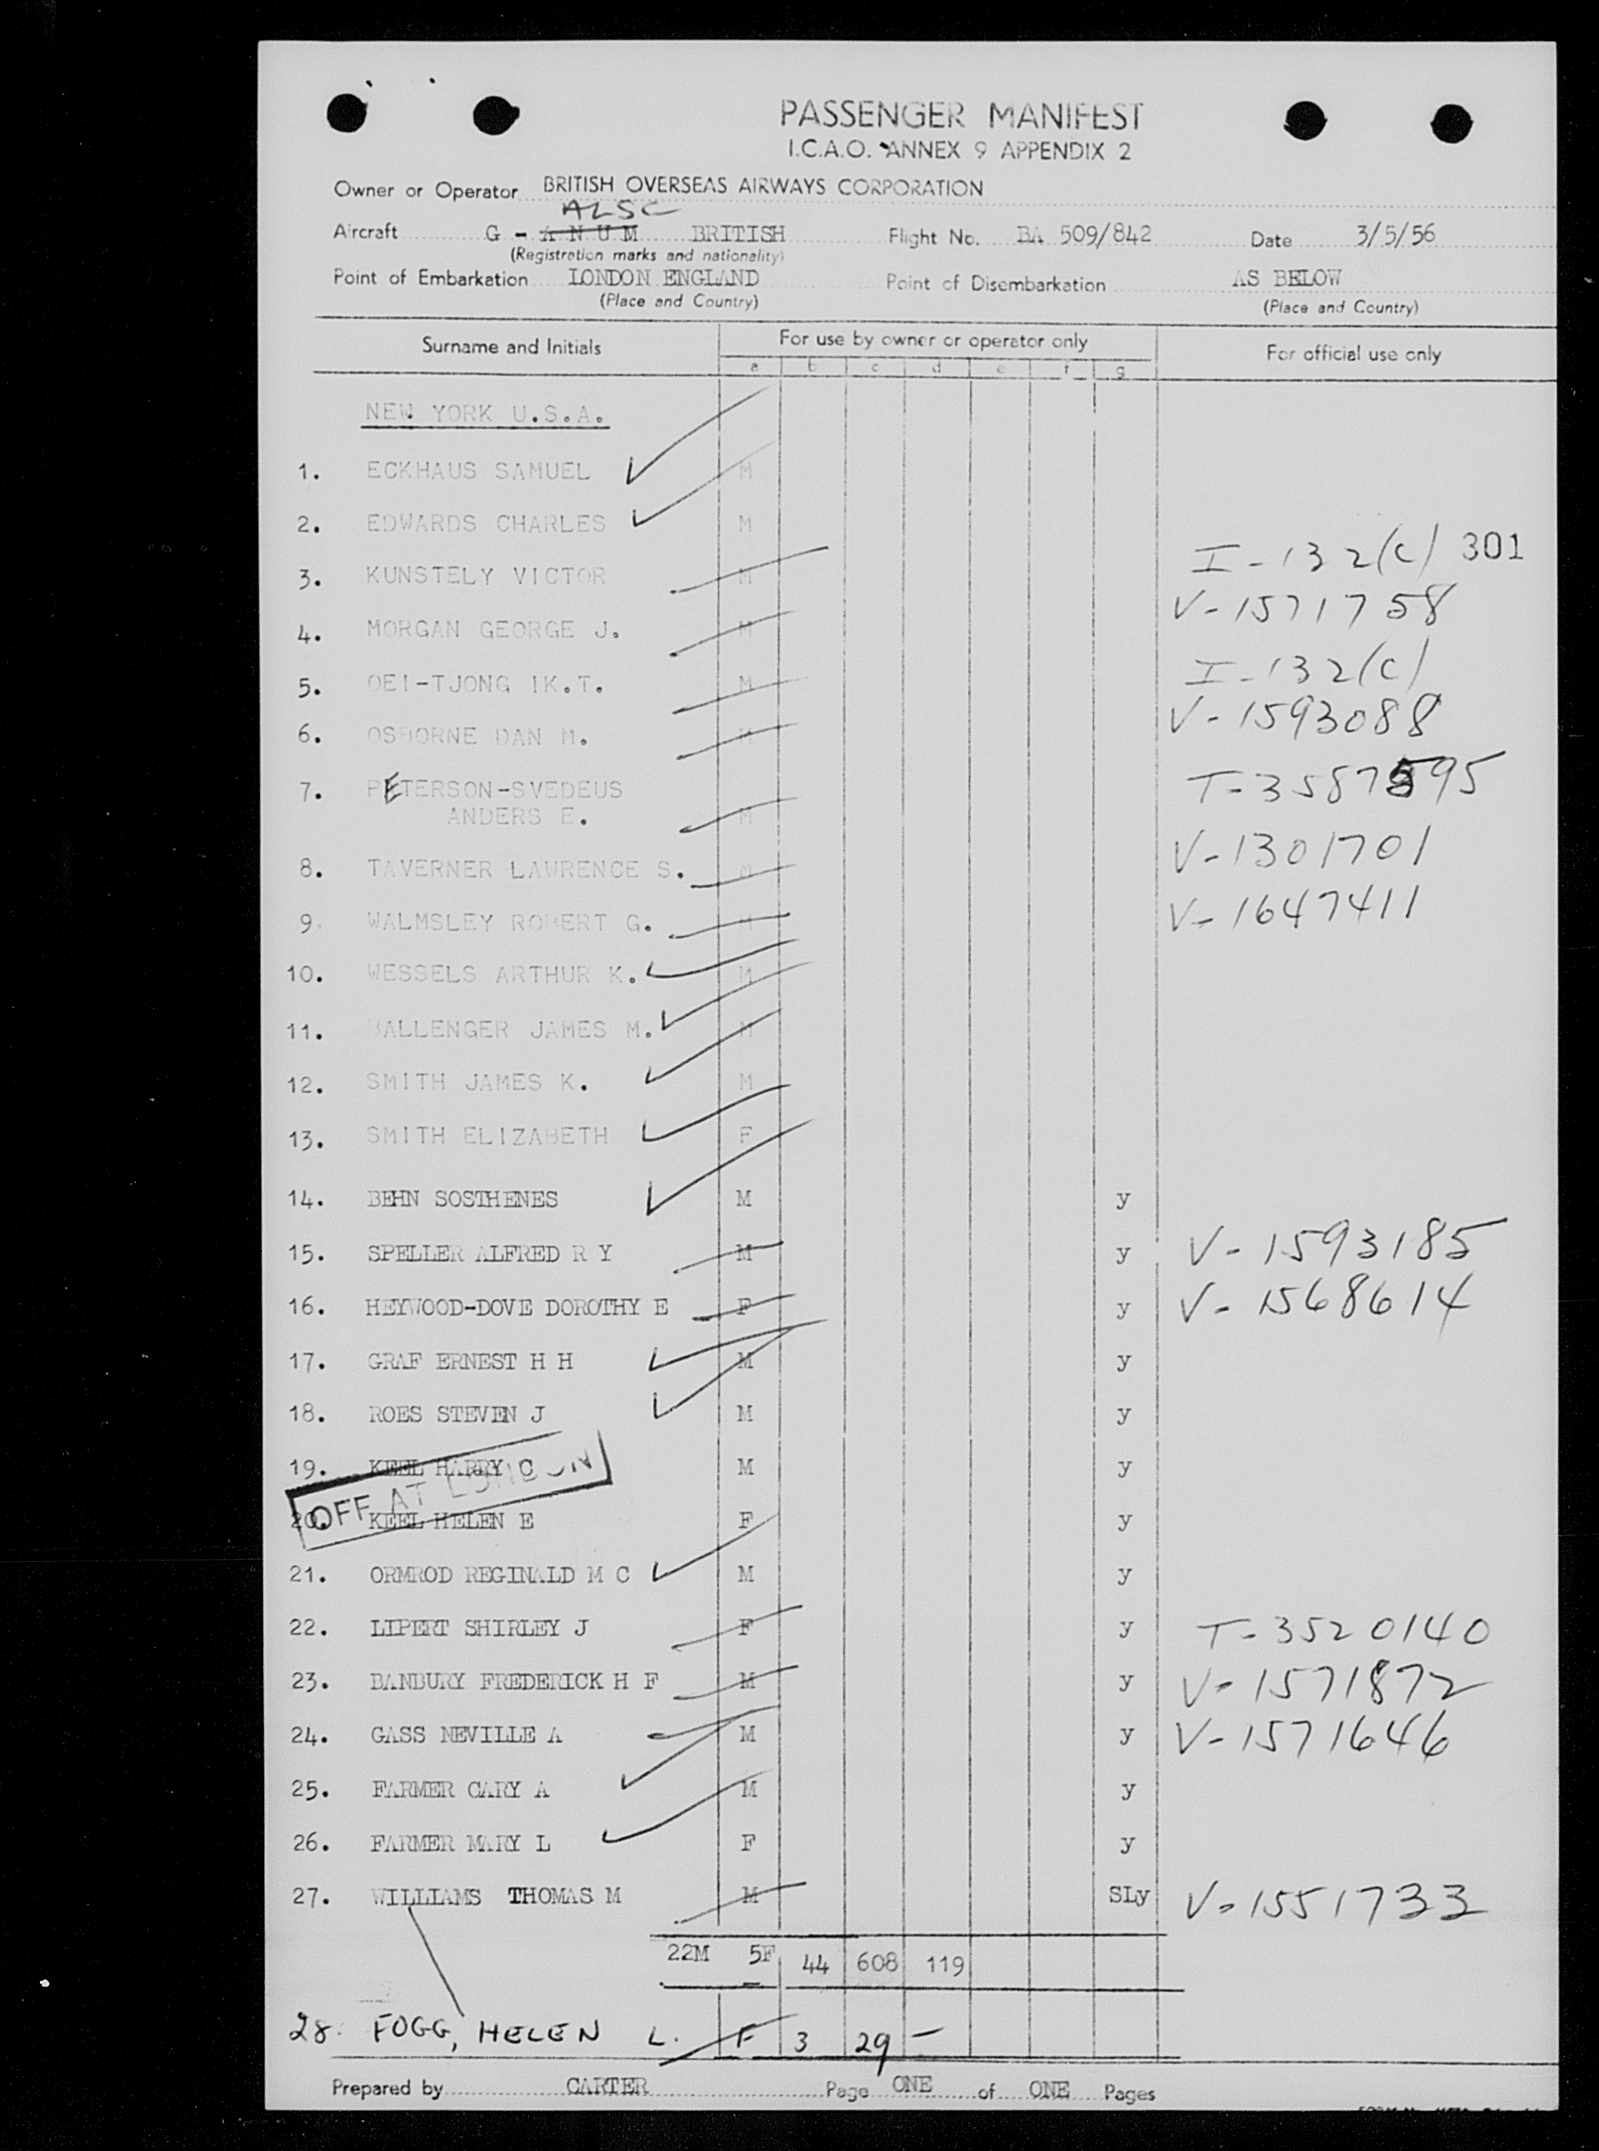 PASSENGER MANIFEST
I.C.A.O. ANNEX 9 APPENDIX 2
Owner or Operator BRITISH OVERSEAS AIRWAYS CORPORATION
ALSC
Aircraft G - A N U M BRITISH Flight No. BA 509/842 Date 3/5/56
(Registration marks and nationality)
Point of Embarkation LONDON ENGLAND Point of Disembarkation AS BELOW
(Place and Country) (Place and Country)
Surname and Initials For use by owner or operator only For official use only
a b c d e f g
NEW YORK U.S.A.
1. ECKHAUS SAMUEL M
2. EDWARDS CHARLES M
3. KUNSTELY VICTOR M I-132(c) 301
4. MORGAN GEORGE J. M V-1571758
5. OEI-TJONG IK.T. M I-132(c)
6. OSBORNE DAN M. M V-1593088
7. PETERSON-SVEDEUS T-3587595
ANDERS E. M
8. TAVERNER LAWRENCE S. M V-1301701
9. WALMSLEY ROBERT G. M V-1647411
10. WESSELS ARTHUR K. M
11. BALLENGER JAMES M. M
12. SMITH JAMES K. M
13. SMITH ELIZABETH F
14. BEHN SOSTHENES M y
15. SPELLER ALFRED R Y M y V-1593185
16. HEYWOOD-DOVE DOROTHY E F y V-1568614
17. GRAF ERNEST H H M y
18. ROES STEVEN J M y
19. KEEL HARRY C M y
OFF AT LONDON
20. KEEL HELEN E F y
21. ORMROD REGINALD M C M y
22. LIPERT SHIRLEY J F y T-3520140
23. BANBURY FREDERICK H F M y V-1571872
24. GASS NEVILLE A M y V-1571646
25. FARMER CARY A M y
26. FARMER MARY L F y
27. WILLIAMS THOMAS M M SLy V-1551733
22M 5F 44 608 119
28. FOGG, HELEN L. F 3 29 -
Prepared by CARTER Page ONE of ONE Pages